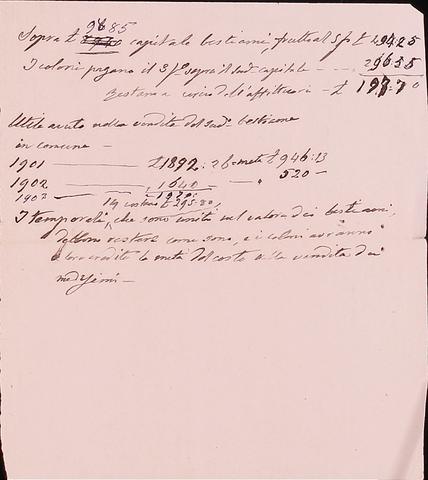 9885
Sopra £ capitale bestiami frutto al 5 p% £ 494.25
I coloni pagano il 3 p% sopra il sud° capitale — 296.55
Resteria a carico dell'affittuario — £ 197.70
Utile avuto nella vendita del sud° bestiame
in comune —
1901 — £ 1892:26 — metà £ 946:13
1902 — 1040 — " 520 —
1903 —
I temporali, che sono uniti nel valore dei bestiami,
debbono restare come sono, e i coloni avranno
a loro credito la metà del costo nella vendita dei
medesimi —